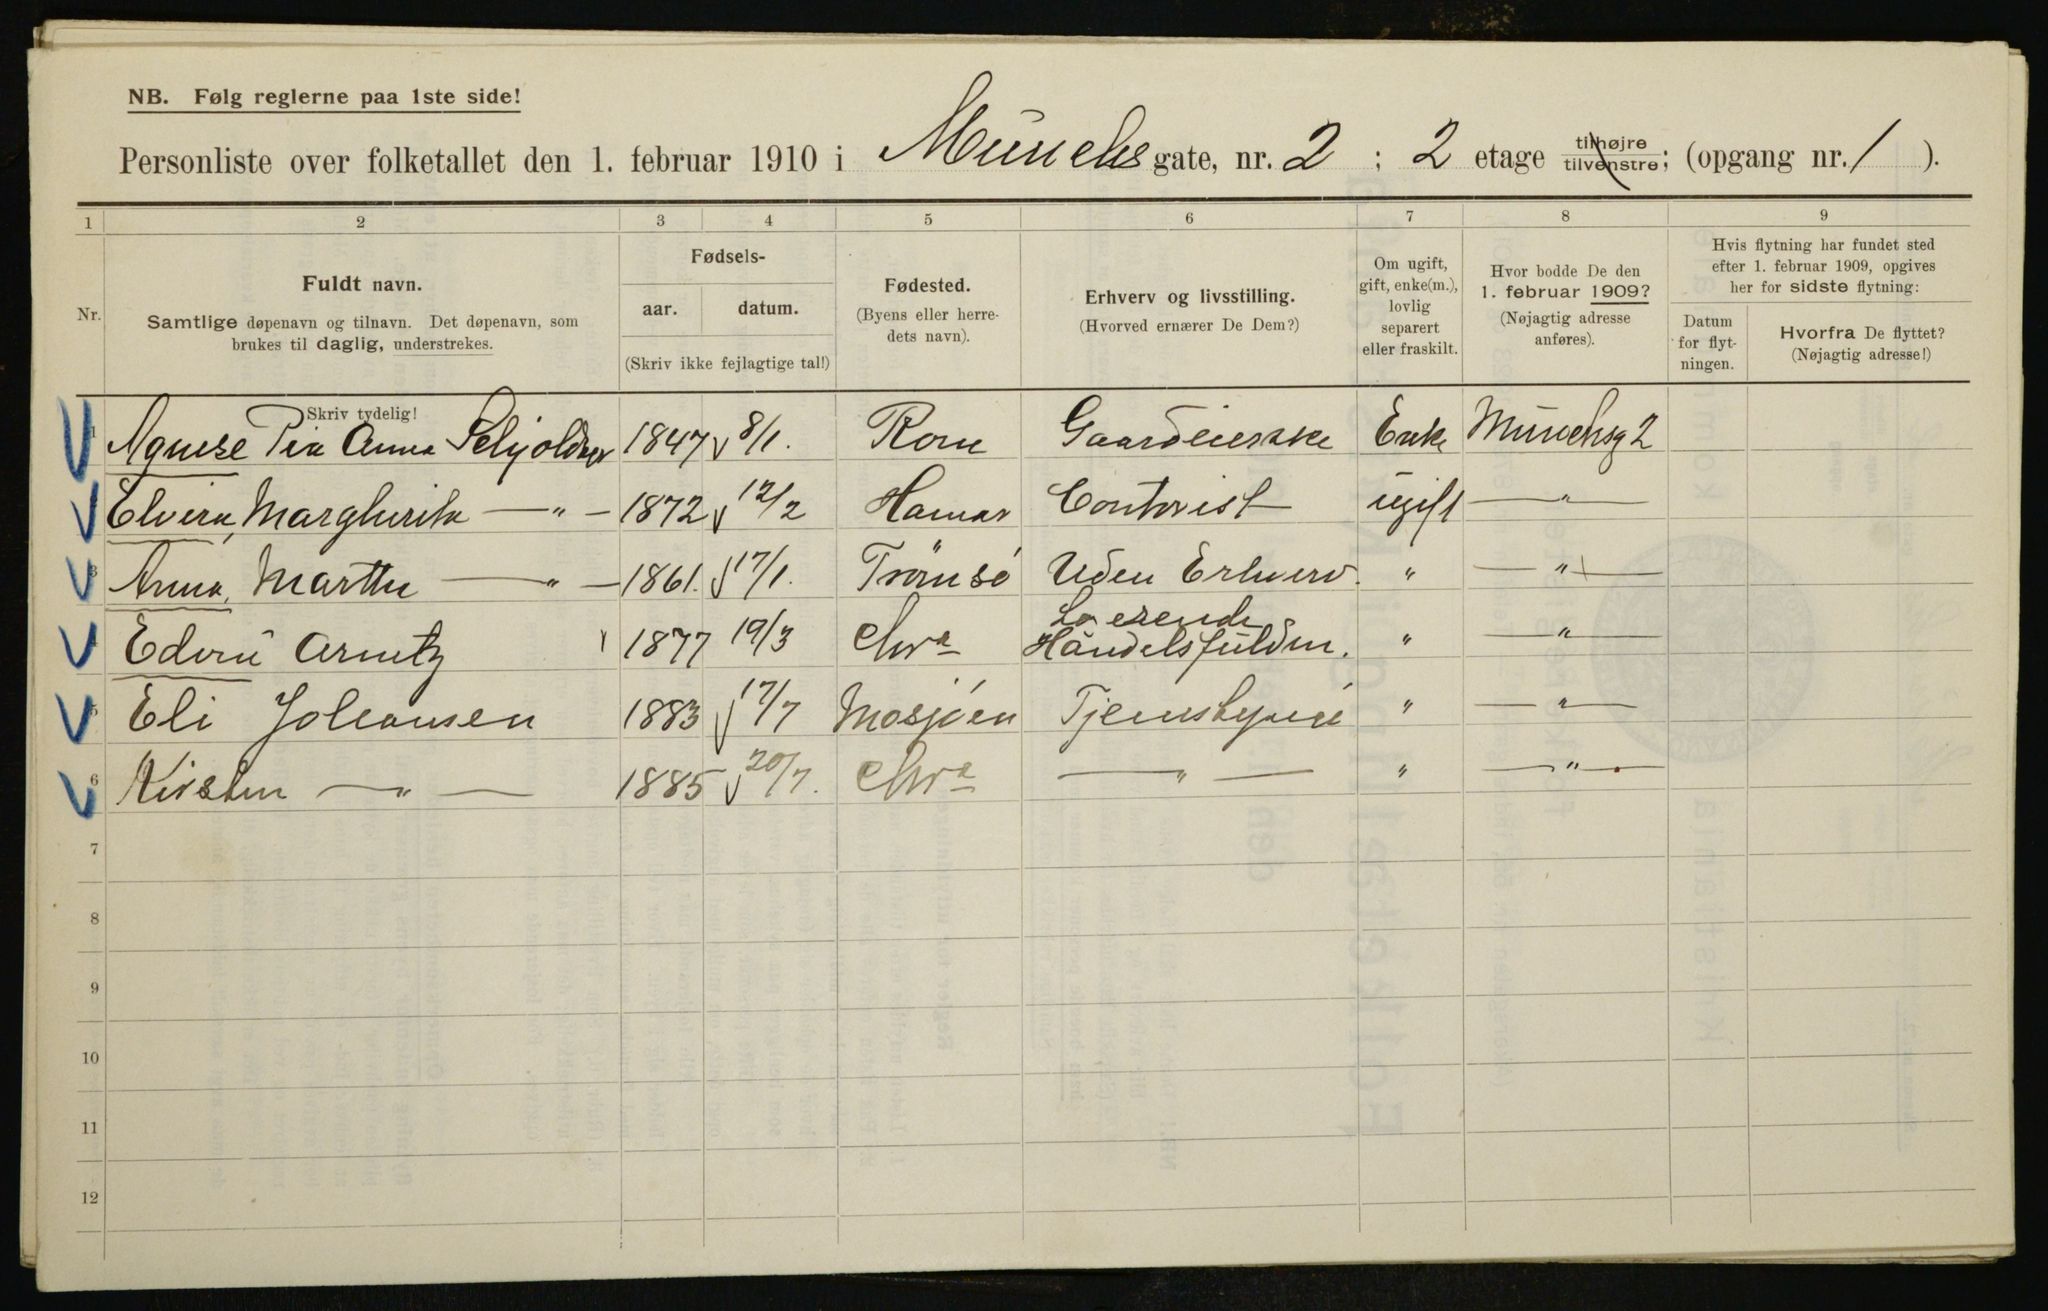 NB. Følg reglerne paa 1ste side!
Personliste over folketallet den 1. februar 1910 i Münchs gate, nr. 2 ; 2 etage tilhøjre tilvenstre; (opgang nr. 1 ).
1 2 3 4 5 6 7 8 9
Nr.
Fuldt navn.
Samtlige døpenavn og tilnavn. Det døpenavn, som
brukes til daglig, understrekes.
Fødsels-
aar. datum.
(Skriv ikke fejlagtige tal!)
Fødested.
(Byens eller herre-
dets navn).
Erhverv og livsstilling.
(Hvorved ernærer De Dem?)
Om ugift,
gift, enke(m.),
lovlig
separert
eller fraskilt.
Hvor bodde De den
1. februar 1909?
(Nøjagtig adresse
anføres).
Hvis flytning har fundet sted
efter 1. februar 1909, opgives
her for sidste flytning:
Datum
for flyt-
ningen.
Hvorfra De flyttet?
(Nøjagtig adresse!)
Skriv tydelig!
1 Agnese Pia Anna 1847 8/1. Rom Gaardeierske Enke Münchsg 2
Elvira, Margherita — " — 1872 12/2 Hamar Contorist ugift — " —
3 Anna, Marthe — " — 1861. 17/1. Tromsö Uden Erhverv. " — " —
4 Edvin Arnitz 1877 19/3 Chra Handelsfuldm. " — " —
5 Eli Johansen 1883 17/7 Mosjöen " — " —
6 Kirsten — " — 1885 20/7. Chra — " — " — " —
7
8
9
10
11
12